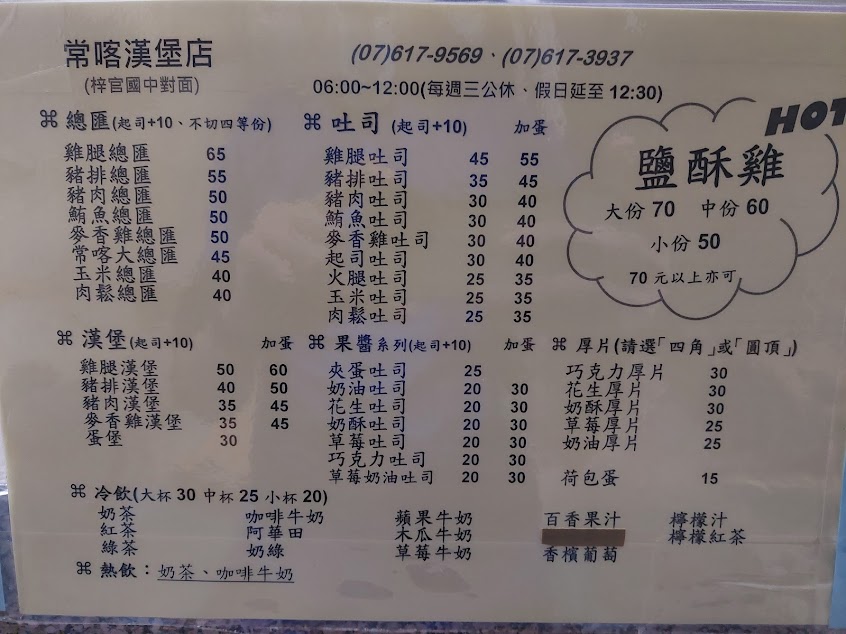 常喀漢堡店
(07)617-9569、(07)617-3937
(梓官國中對面)
06:00~12:00(每週三公休、假日延至 12:30)
⌘ 總匯(起司+10、不切四等份)
雞腿總匯 65
豬排總匯 55
豬肉總匯 50
鮪魚總匯 50
麥香雞總匯 50
常喀大總匯 45
玉米總匯 40
肉鬆總匯 40
⌘ 吐司 (起司+10) 加蛋
雞腿吐司 45 55
豬排吐司 35 45
豬肉吐司 30 40
鮪魚吐司 30 40
麥香雞吐司 30 40
起司吐司 30 40
火腿吐司 25 35
玉米吐司 25 35
肉鬆吐司 25 35
HOT
鹽酥雞
大份 70 中份 60
小份 50
70 元以上亦可
⌘ 漢堡(起司+10) 加蛋
雞腿漢堡 50 60
豬排漢堡 40 50
豬肉漢堡 35 45
麥香雞漢堡 35 45
蛋堡 30
⌘ 果醬系列(起司+10) 加蛋
夾蛋吐司 25
奶油吐司 20 30
花生吐司 20 30
奶酥吐司 20 30
草莓吐司 20 30
巧克力吐司 20 30
草莓奶油吐司 20 30
⌘ 厚片(請選「四角」或「圓頂」)
巧克力厚片 30
花生厚片 30
奶酥厚片 30
草莓厚片 25
奶油厚片 25
荷包蛋 15
⌘ 冷飲(大杯 30 中杯 25 小杯 20)
奶茶 咖啡牛奶 蘋果牛奶 百香果汁 檸檬汁
紅茶 阿華田 木瓜牛奶 檸檬紅茶
綠茶 奶綠 草莓牛奶 香檳葡萄
⌘ 熱飲：奶茶、咖啡牛奶